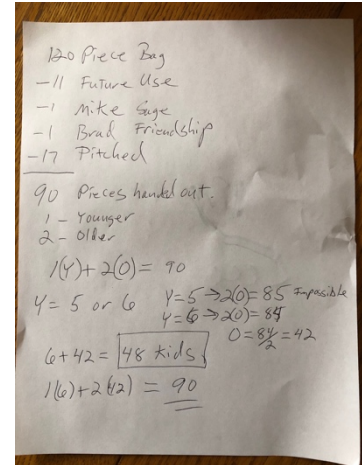 120 Piece Bag
-11 Future Use
-1 Mike Sage
-1 Brad Friendship
-17 Pitched
90 Pieces handed out.
1 - Younger
2 - Older
1(Y) + 2(O) = 90
Y = 5 or 6
Y=5 → 2(O) = 85 Impossible
Y=6 → 2(O) = 84
O = 84/2 = 42
6 + 42 = 48 kids
1(6) + 2(42) = 90